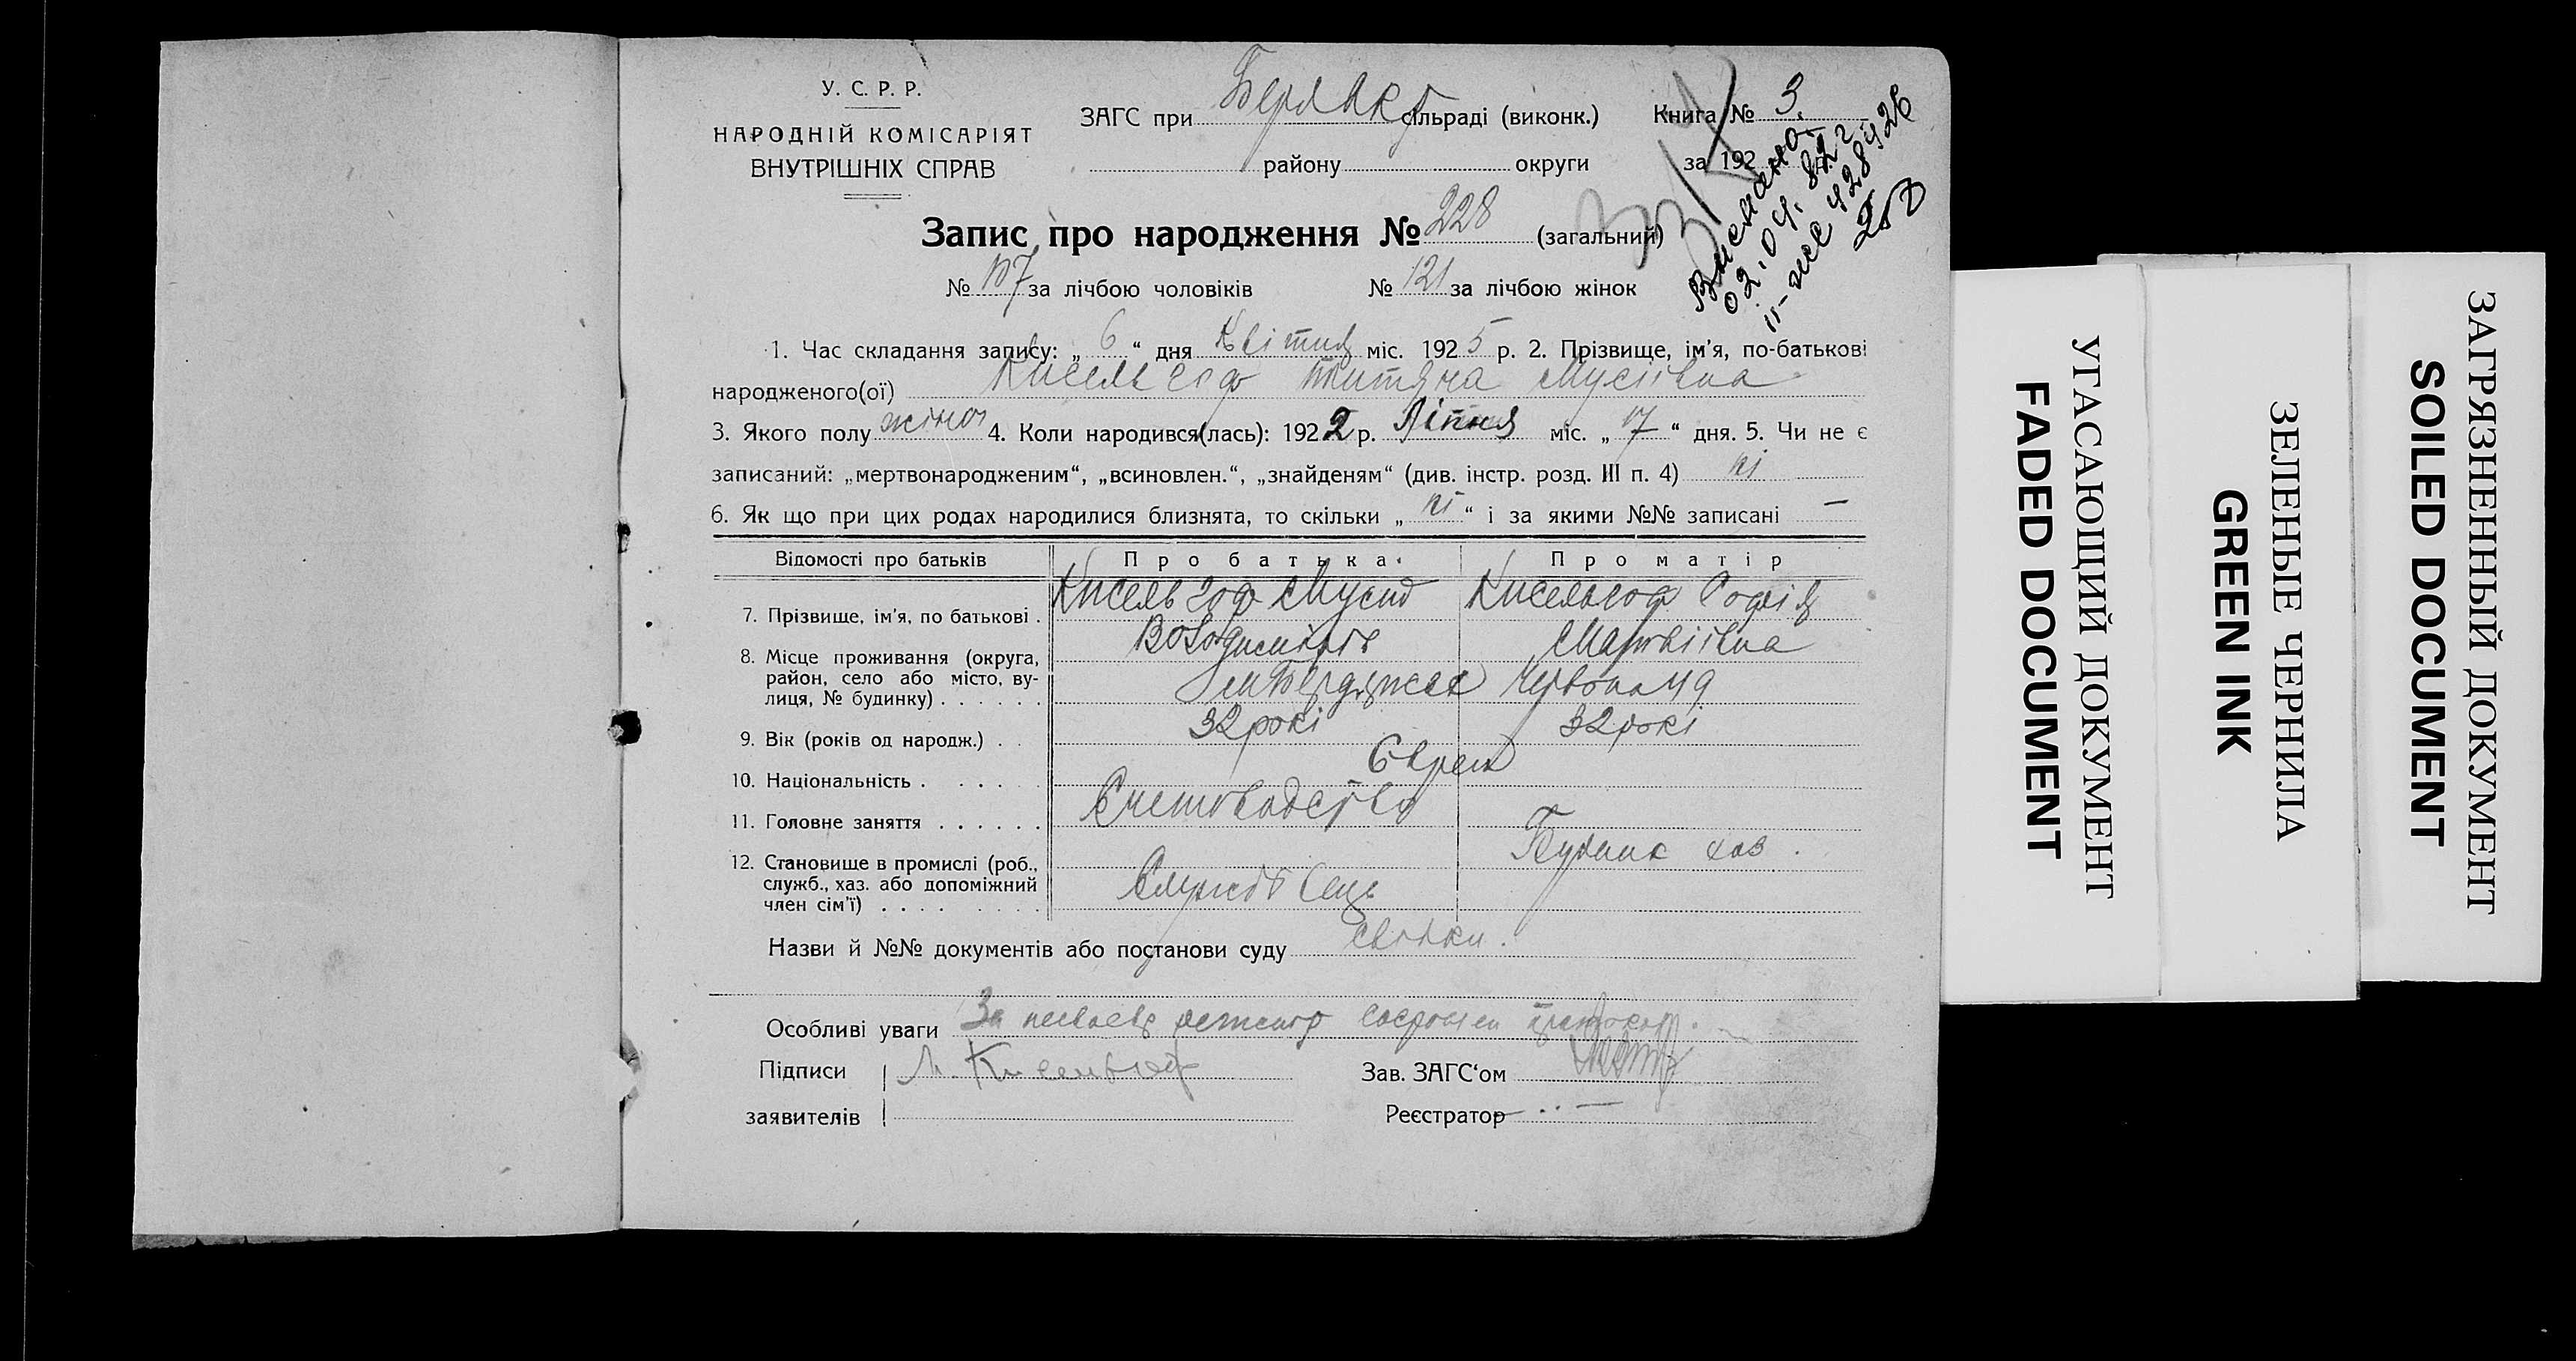 У. С. Р. Р.
НАРОДНІЙ КОМІСАРІЯТ
ВНУТРІШНІХ СПРАВ
ЗАГС при сільраді (виконк.)
району округи
Книга № 3.
за 192
02.04.82 г.
Запис про народження № 228 (загальний)
№ 107 за лічбою чоловіків № 121 за лічбою жінок
1. Час складання запису: „ 6 “ дня Квітня міс. 192 5 р. 2. Прізвище, ім'я, по-батькові
народженого(ої) Кисельгоф Титяна Мусіівна
3. Якого полу жіноч 4. Коли народився(лась): 192 2 р. Ліпня міс. „ 17 “ дня. 5. Чи не є
записаний: „мертвонародженим“, „всиновлен.“, „знайденям“ (див. інстр. розд. III п. 4) ні
6. Як що при цих родах народилися близнята, то скільки „ ні “ і за якими №№ записані —
Відомості про батьків Про батька Про матір
7. Прізвище, ім'я, по батькові . Кисельгоф Мусій Кисельгоф Софія
Володимірів Матвіівна
8. Місце проживання (округа,
район, село або місто, ву-
лиця, № будинку) . . . . . . м Бердичев Червона 49
9. Вік (років од народж.) . . 32 рокі 32 рокі
10. Національність . . . . Євреи
11. Головне заняття . . . . . . Счетоводство
12. Становище в промислі (роб.,
служб., хаз. або допоміжний
член сім'ї) . . . . . . . . Службовець хаз.
Назви й №№ документів або постанови суду свідки.
Особливі уваги За
Підписи М. Кисельгоф Зав. ЗАГС'ом
заявителів Реєстратор —
УГАСАЮЩИЙ ДОКУМЕНТ
FADED DOCUMENT
ЗЕЛЕНЫЕ ЧЕРНИЛА
GREEN INK
ЗАГРЯЗНЕННЫЙ ДОКУМЕНТ
SOILED DOCUMENT